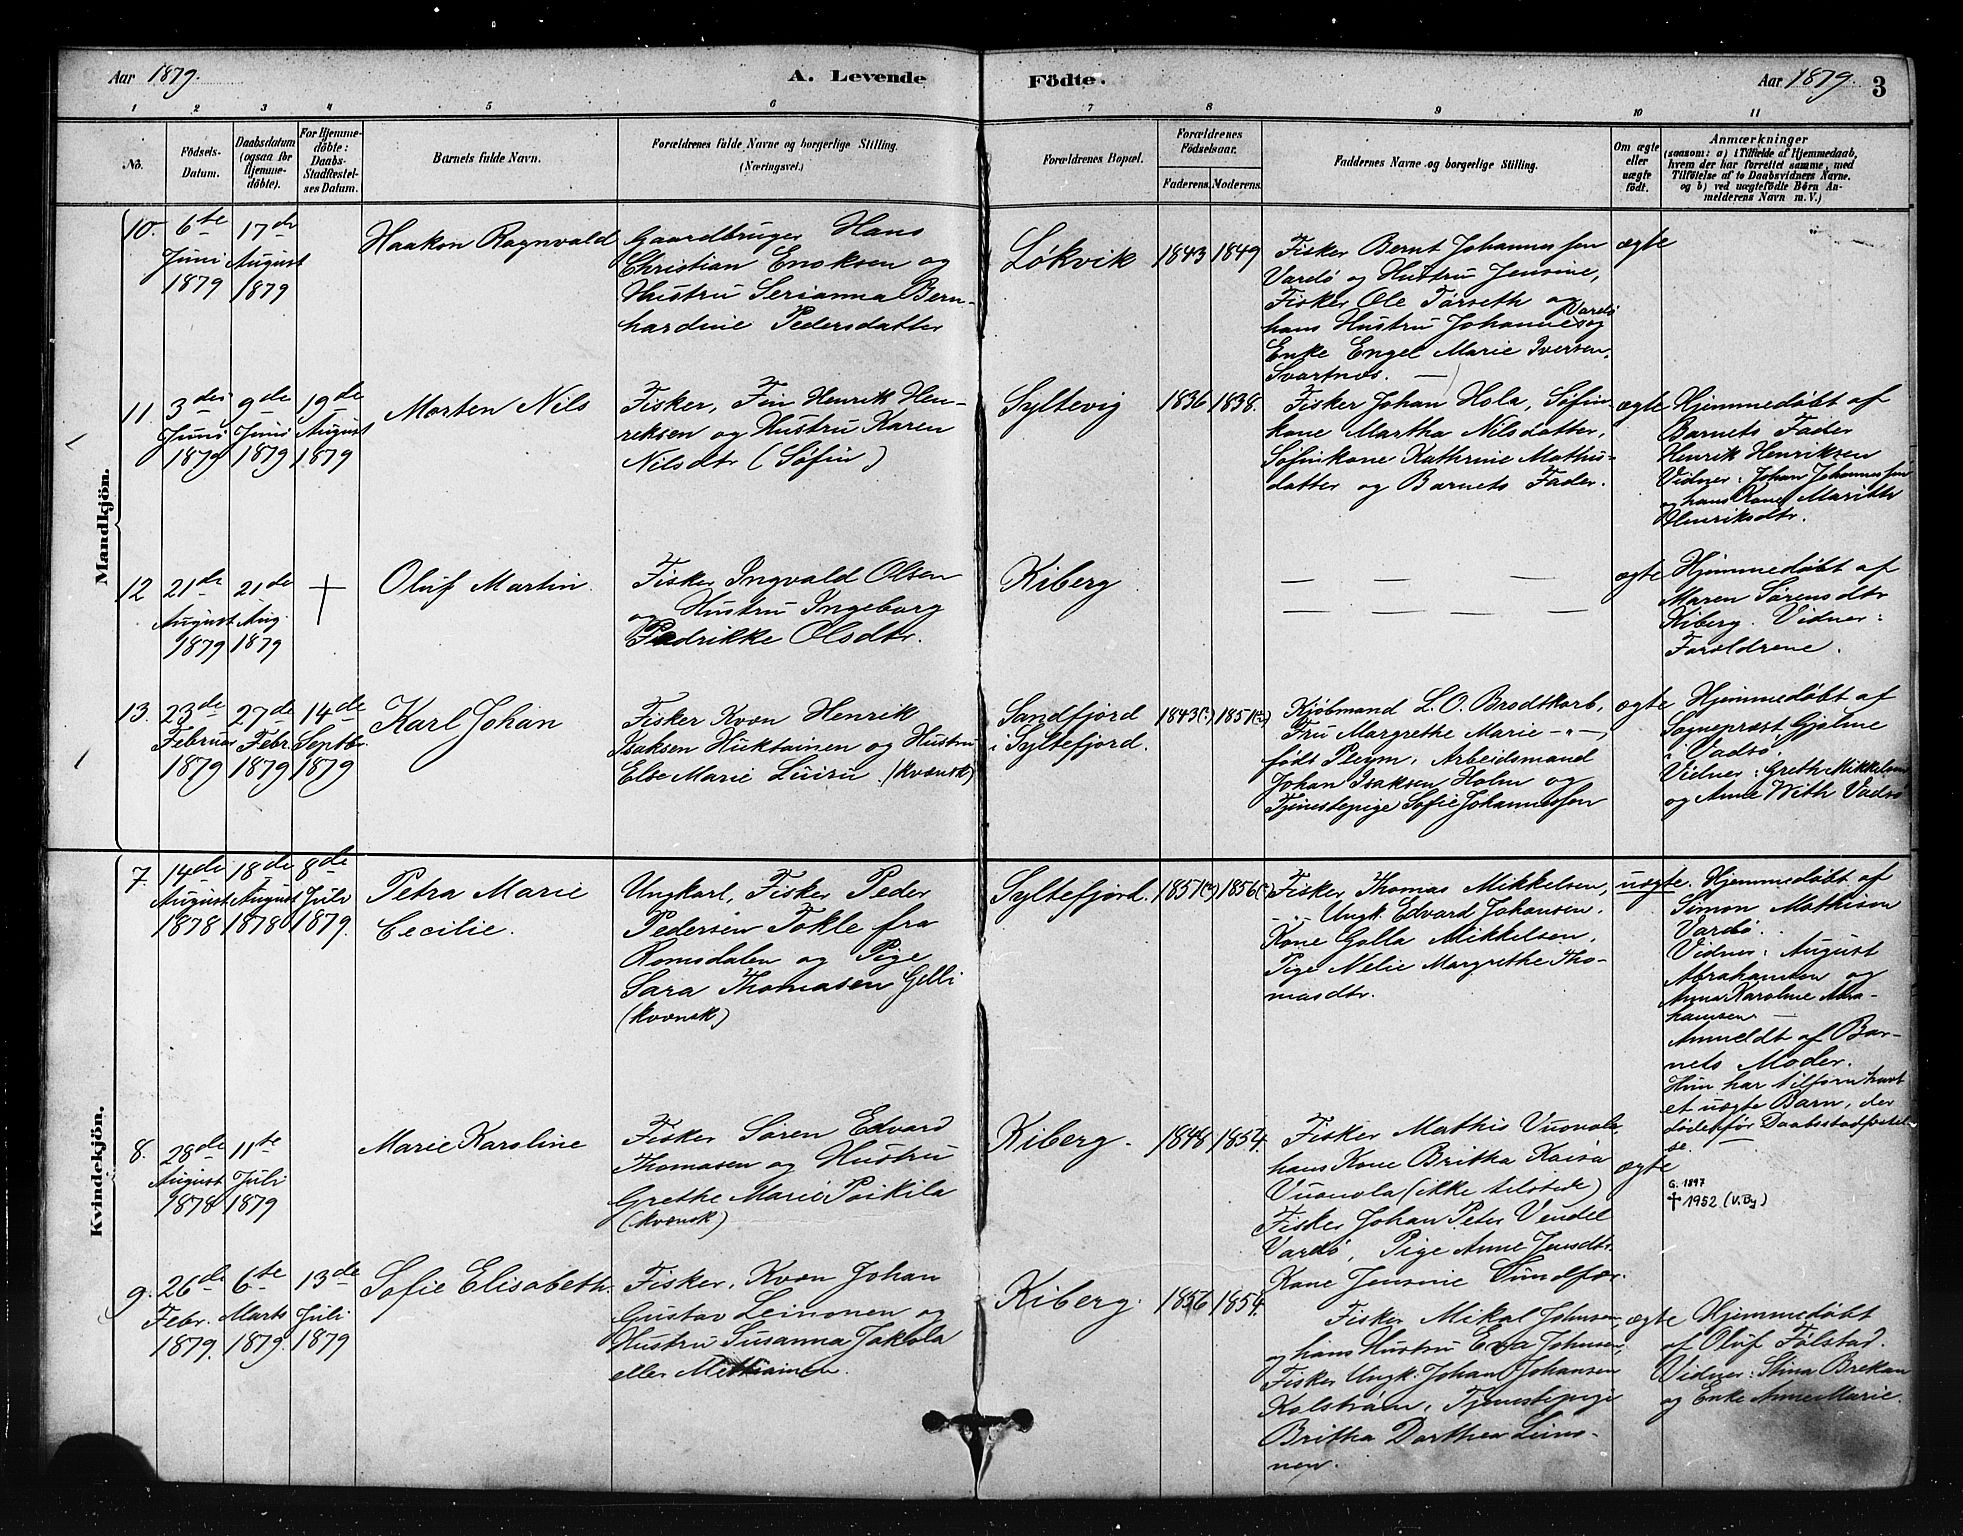 Aar 1879.
A. Levende Födte.
Aar 1879. 3
1 2 3 4 5 6 7 8 9 10 11
No. Födsels-Datum. Daabsdatum (ogsaa for Hjemme-döbte). For Hjemme-döbte: Daabs-Stadfæstel-ses Datum. Barnets fulde Navn. Forældrenes fulde Navne og borgerlige Stilling. (Næringsvei.) Forældrenes Bopæl. Forældrenes Födselsaar. Faderens. Moderens. Faddernes Navne og borgerlige Stilling. Om ægte eller uægte födt. Anmærkninger (saasom: a) i Tilfælde af Hjemmedaab, hvem der har forrettet samme, med Tilföielse af to Daabsvidners Navne, og b) ved uægtefödte Börn An-melderens Navn m. V.)
Mandkjön.
10. 6te Juni 1879
17de August 1879
Haakon Ragnvald
Gaardbruger Hans
Christian Enoksen og
Hustru Serianna Bern-
hardine Pedersdatter
Løkvik 1843 1849
Fisker Bernt Johannessen
Vardø og Hustru Jensine,
Fisker Ole Torseth og
hans Hustru Johanne Vardø og
Enke Engel Marie Iversen,
Svartnes. —
ægte
11. 3die Juni 1879
9de Juni 1879
19de August 1879
Morten Nils
Fisker, Fin Henrik Hen-
reksen og Hustru Karen
Nilsdtr (Søfin)
Syltevig 1836 1838.
Fisker Johan Hola, Søfin-
kone Martha Nilsdatter,
Søfinkone Kathrine Mathis-
datter og Barnets Fader.
ægte
Hjemmedøbt af
Barnets Fader
Henrik Henriksen
Vidner: Johan Johannessen
og hans Kone Marithe
Henriksdtr.
12 21de August 1879
21de Aug. 1879
†
Oluf Martin.
Fisker Ingvald Olsen
og Hustru Ingeborg
Pedrikke Olsdtr.
Kiberg
— — — —
— — — —
ægte
Hjemmedøbt af
Maren Sørensdtr
Kiberg. Vidner:
Forældrene.
13. 23de Februar 1879
27de Febr. 1879
14de Septbr. 1879
Karl Johan
Fisker Kvæn Henrik
Isaksen Huktainen og Hustru
Else Marie Luisu. (kvænsk)
Sandfjord
i Syltefjord. 1843(?) 1851(?)
Kjøbmand L. O. Brodtkorb,
Fru Margrethe Marie —"—,
født Pleym, Arbeidsmand
Johan Isaksen Holm og
Tjenestepige Sofie Johannessen
ægte
Hjemmedøbt af
Sognepræst Gjølme
i Vadsø.
Vidner: Grethe Mikkelsen
og Anne With Vadsø
Kvindekjön.
7. 14de August 1878
18de August 1878
8de Juli 1879.
Petra Marie
Cecilie.
Ungkarl, Fisker Peder
Pedersen Tokle fra
Romsdalen og Pige
Sara Thomasen Gelli
(kvænsk)
Syltefjord. 1851(?) 1856(?)
Fisker Thomas Mikkelsen,
—"— Ungk. Edvard Johansen.
Kone Golla Mikkelsen,
Pige Nelie Margrethe Tho-
masdtr.
uægte.
Hjemmedøbt af
Simon Mathison
Vardø.
Vidner: August
Abrahamsen og
Anna Karoline Abra-
hamsen —
Anmeldt af Bar-
nets Moder.
Hun har tilforn havt
et uægte Barn, der
døde før Daabsstadfæstel-
se. —
8. 28de August 1878
11te Juli 1879
Marie Karoline
Fisker Søren Edvard
Thomasen og Hustru
Grethe Marie Poikila
(kvænsk)
Kiberg. 1848 1854.
Fisker Mathis Vuonola,
hans Kone Britha Kaisa
Vuonola (ikke tilstede)
Fisker Johan Peter Vendel
Vardø, Pige Anne Jensdtr.
Kone Jensine Sundfær.
ægte
G. 1897
† 1952 (V. By)
9. 26de Febr. 1879.
6te Marts 1879.
13de Juli 1879
Sofie Elisabeth.
Fisker, Kvæn Johan
Gustav Leinonen og
Hustru Susanna Jakola
eller
Kiberg. 1856 1854.
Fisker Mikal Johnsen,
og hans Hustru Eva Johnsen,
Fisker Ungk. Johan Johansen
Kalstrøm, Tjenestepige
Britha Dorthea Leino-
nen.
ægte
Hjemmedøbt
af Oluf Følstad.
Vidner: Stina Brekan
og Enke Anne Marie.